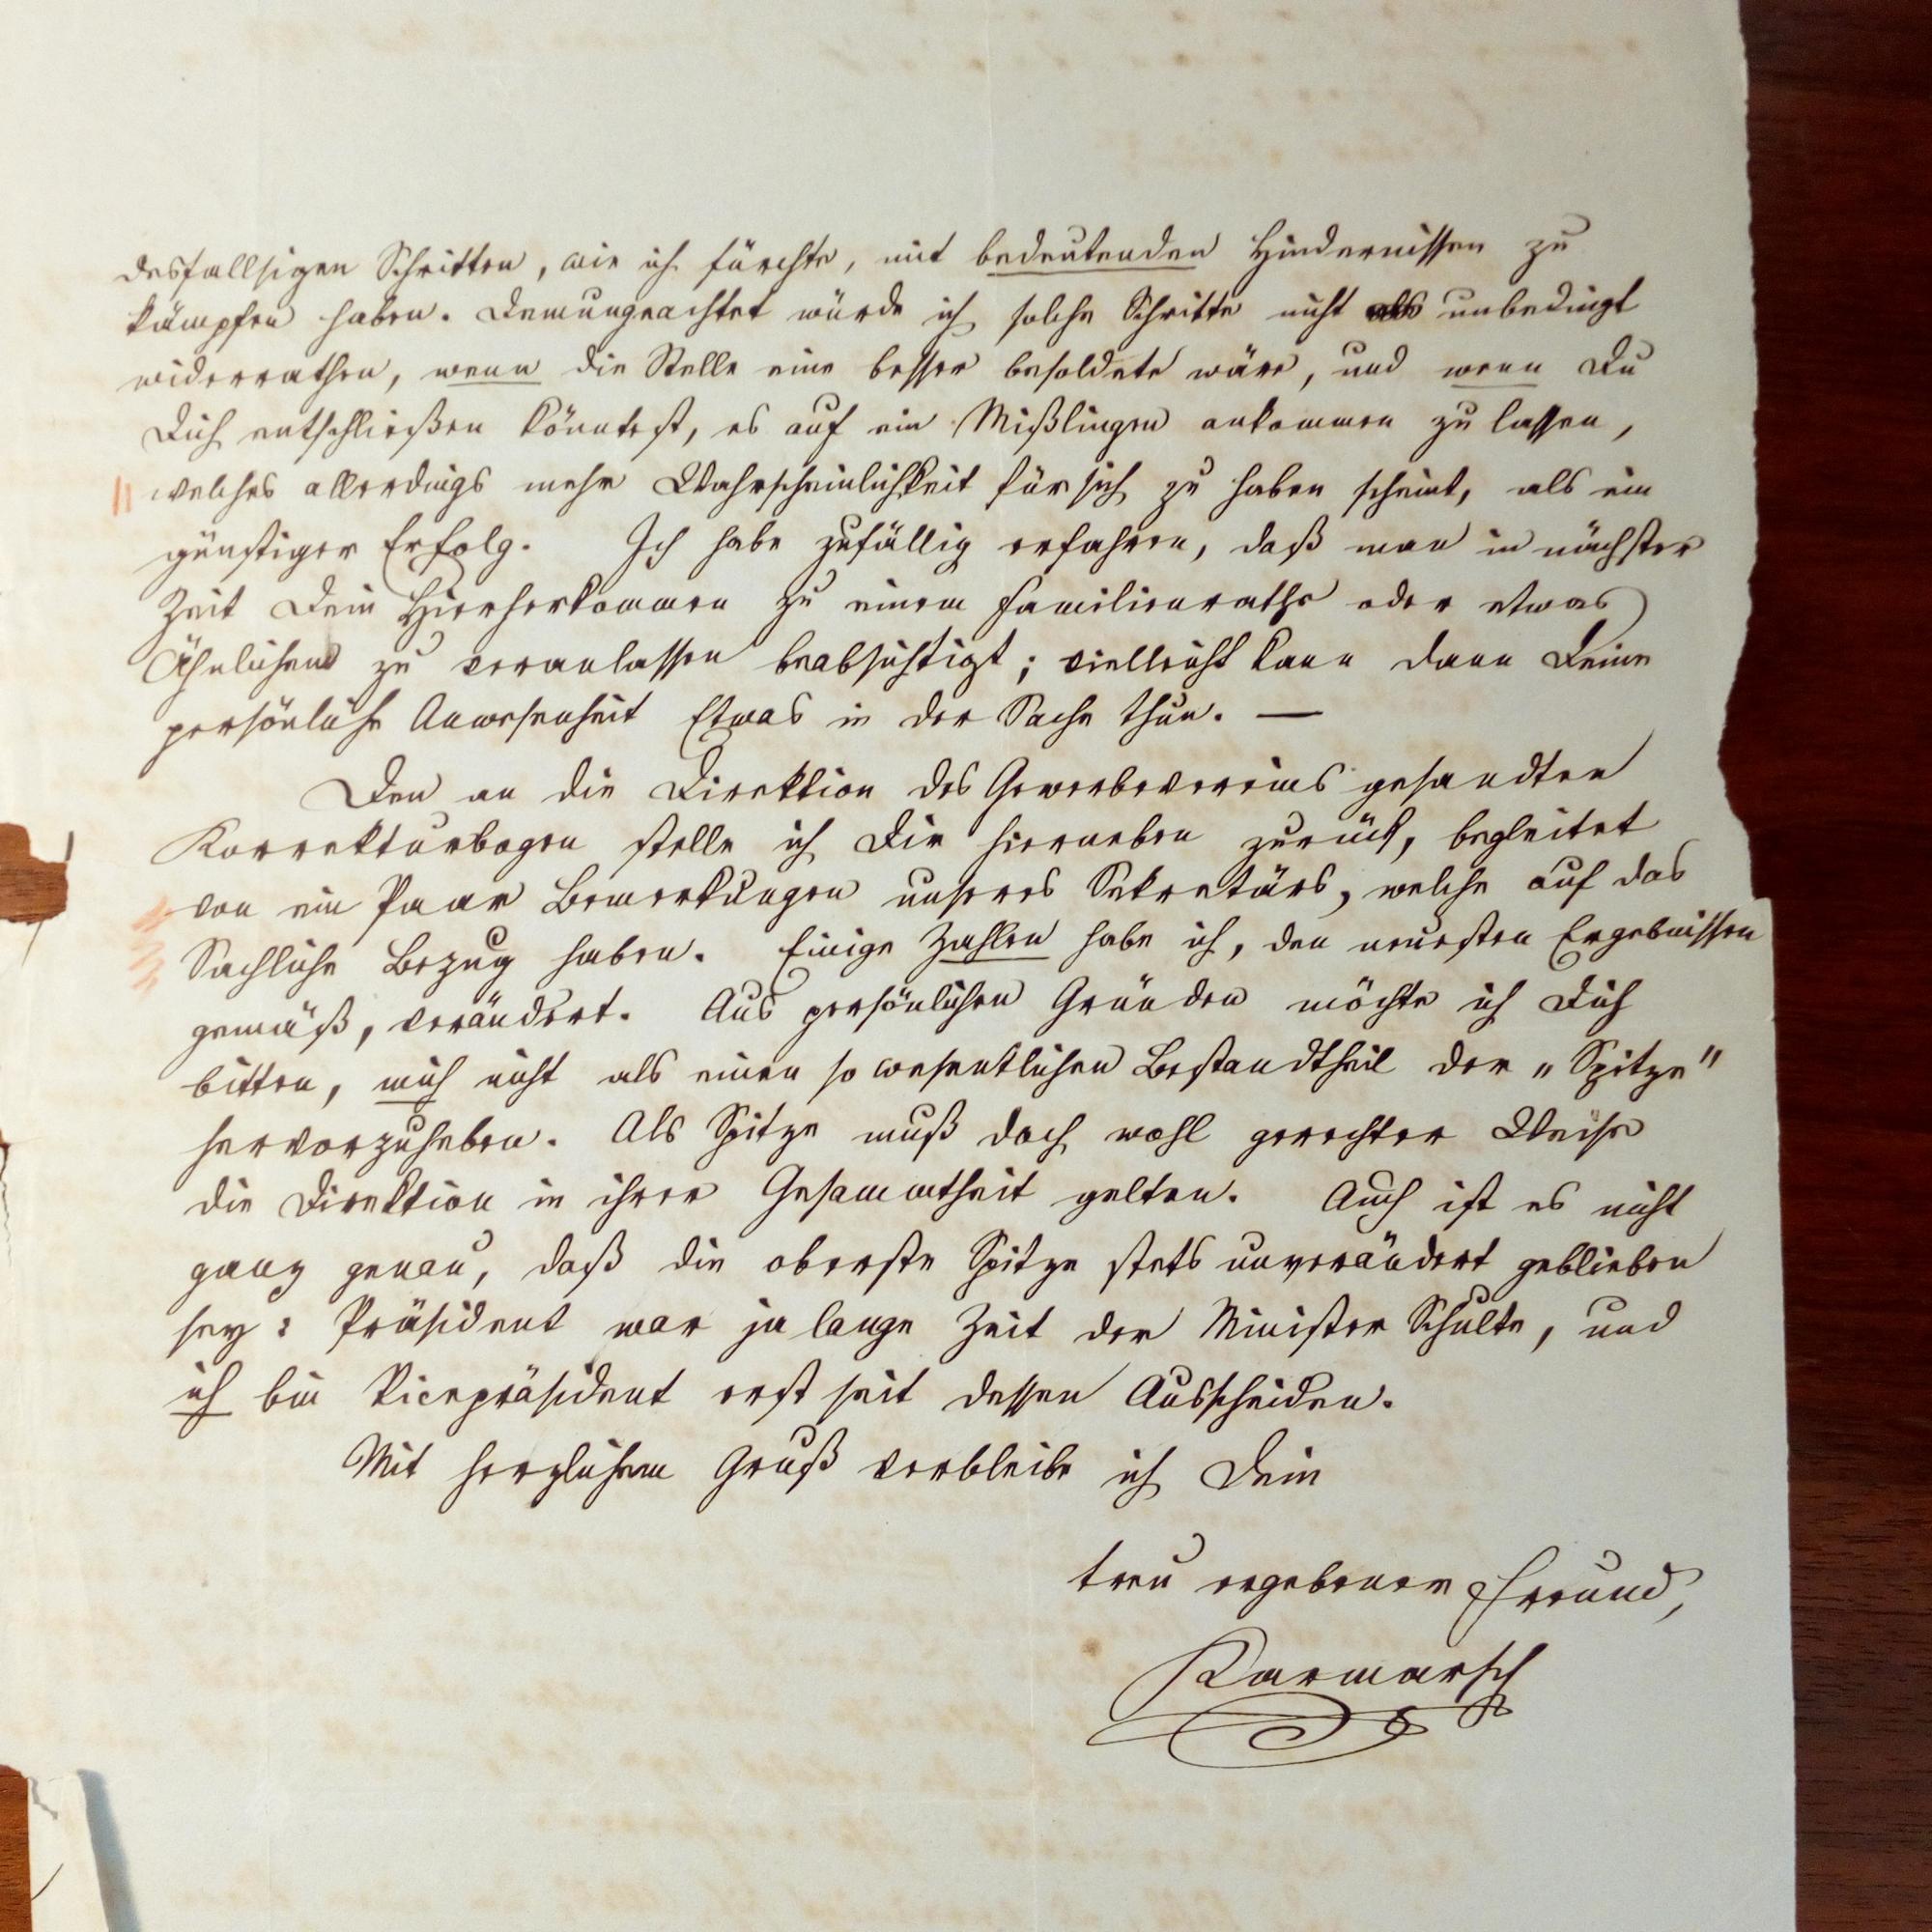 desfallsigen Schritten, wie ich fürchte, mit bedeutenden Hindernissen zu
kämpfen haben. Demungeachtet würde ich solche Schritte nicht unbedingt
widerrathen, wenn die Stelle eine besser besoldete wäre, und wenn Du
Dich entschließen könntest, es auf ein Mißlingen ankommen zu lassen,
welches allerdings mehr Wahrscheinlichkeit für sich zu haben scheint, als ein
günstiger Erfolg. Ich habe zufällig erfahren, daß man in nächster
Zeit Dein Hierherkommen zu einem Familienrathe oder etwas
Ähnlichem zu veranlassen beabsichtigt; vielleicht kann dann Deine
persönliche Anwesenheit Etwas in der Sache thun. —
Den an die Direktion des Gewerbevereins gesandten
Korrekturbogen stelle ich Dir hierneben zurück, begleitet
von ein Paar Bemerkungen unseres Sekretärs, welche auf das
Sachliche Bezug haben. Einige Zahlen habe ich, den neuesten Ergebnissen
gemäß, verändert. Aus persönlichen Gründen möchte ich Dich
bitten, mich nicht als einen so wesentlichen Bestandtheil der „Spitze"
hervorzuheben. Als Spitze muß doch wohl gerechter Weise
die Direktion in ihrer Gesammtheit gelten. Auch ist es nicht
ganz genau, daß die oberste Spitze stets unverändert geblieben
sey: Präsident war ja lange Zeit der Minister Schulte, und
ich bin Vicepräsident erst seit dessen Ausscheiden.
Mit herzlichem Gruß verbleibe ich Dein
treu ergebener Freund,
Karmarsch